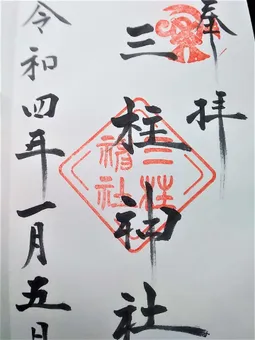 奉拝
三柱神社
三柱神社
令和四年一月五日